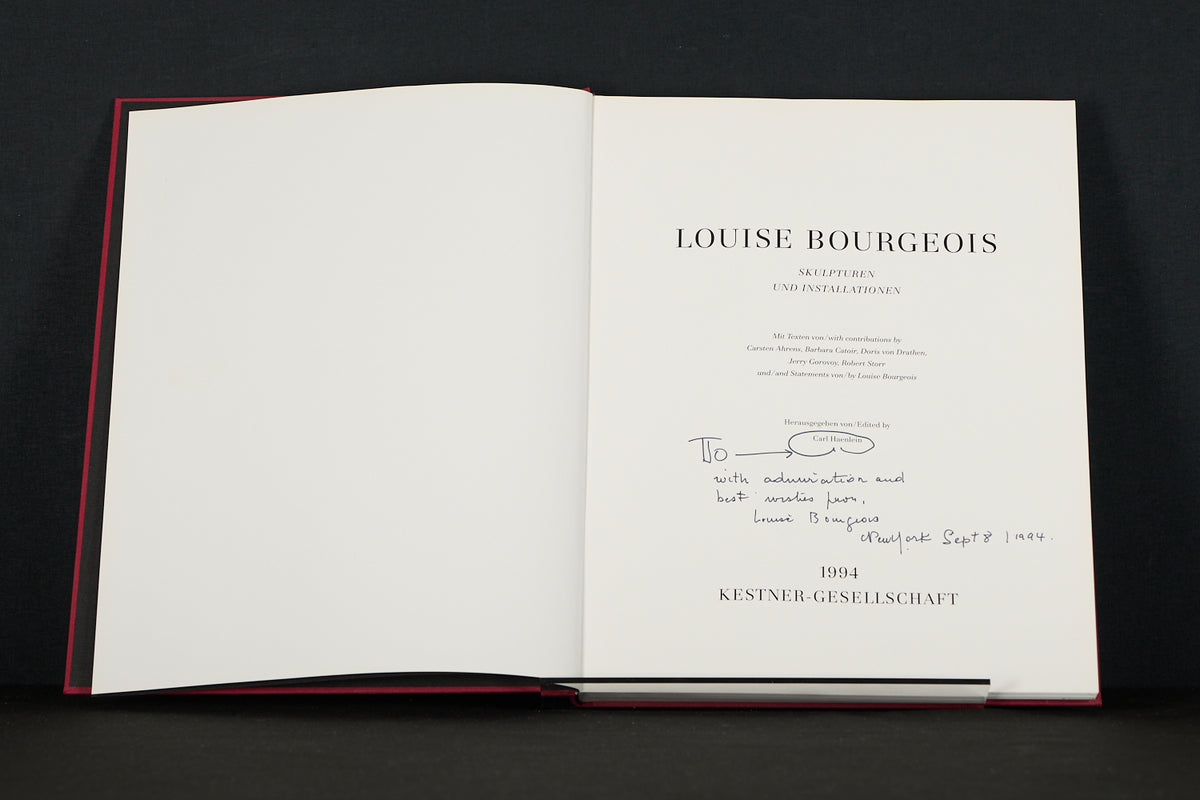 LOUISE BOURGEOIS
SKULPTUREN
UND INSTALLATIONEN
Mit Texten von/with contributions by
Carsten Ahrens, Barbara Catoir, Doris von Drathen,
Jerry Gorovoy, Robert Storr
und/and Statements von/by Louise Bourgeois
Herausgegeben von/Edited by
Carl Haenlein
To
with admiration and
best wishes from,
Louise Bourgeois
New York Sept 8 1994.
1994
KESTNER-GESELLSCHAFT